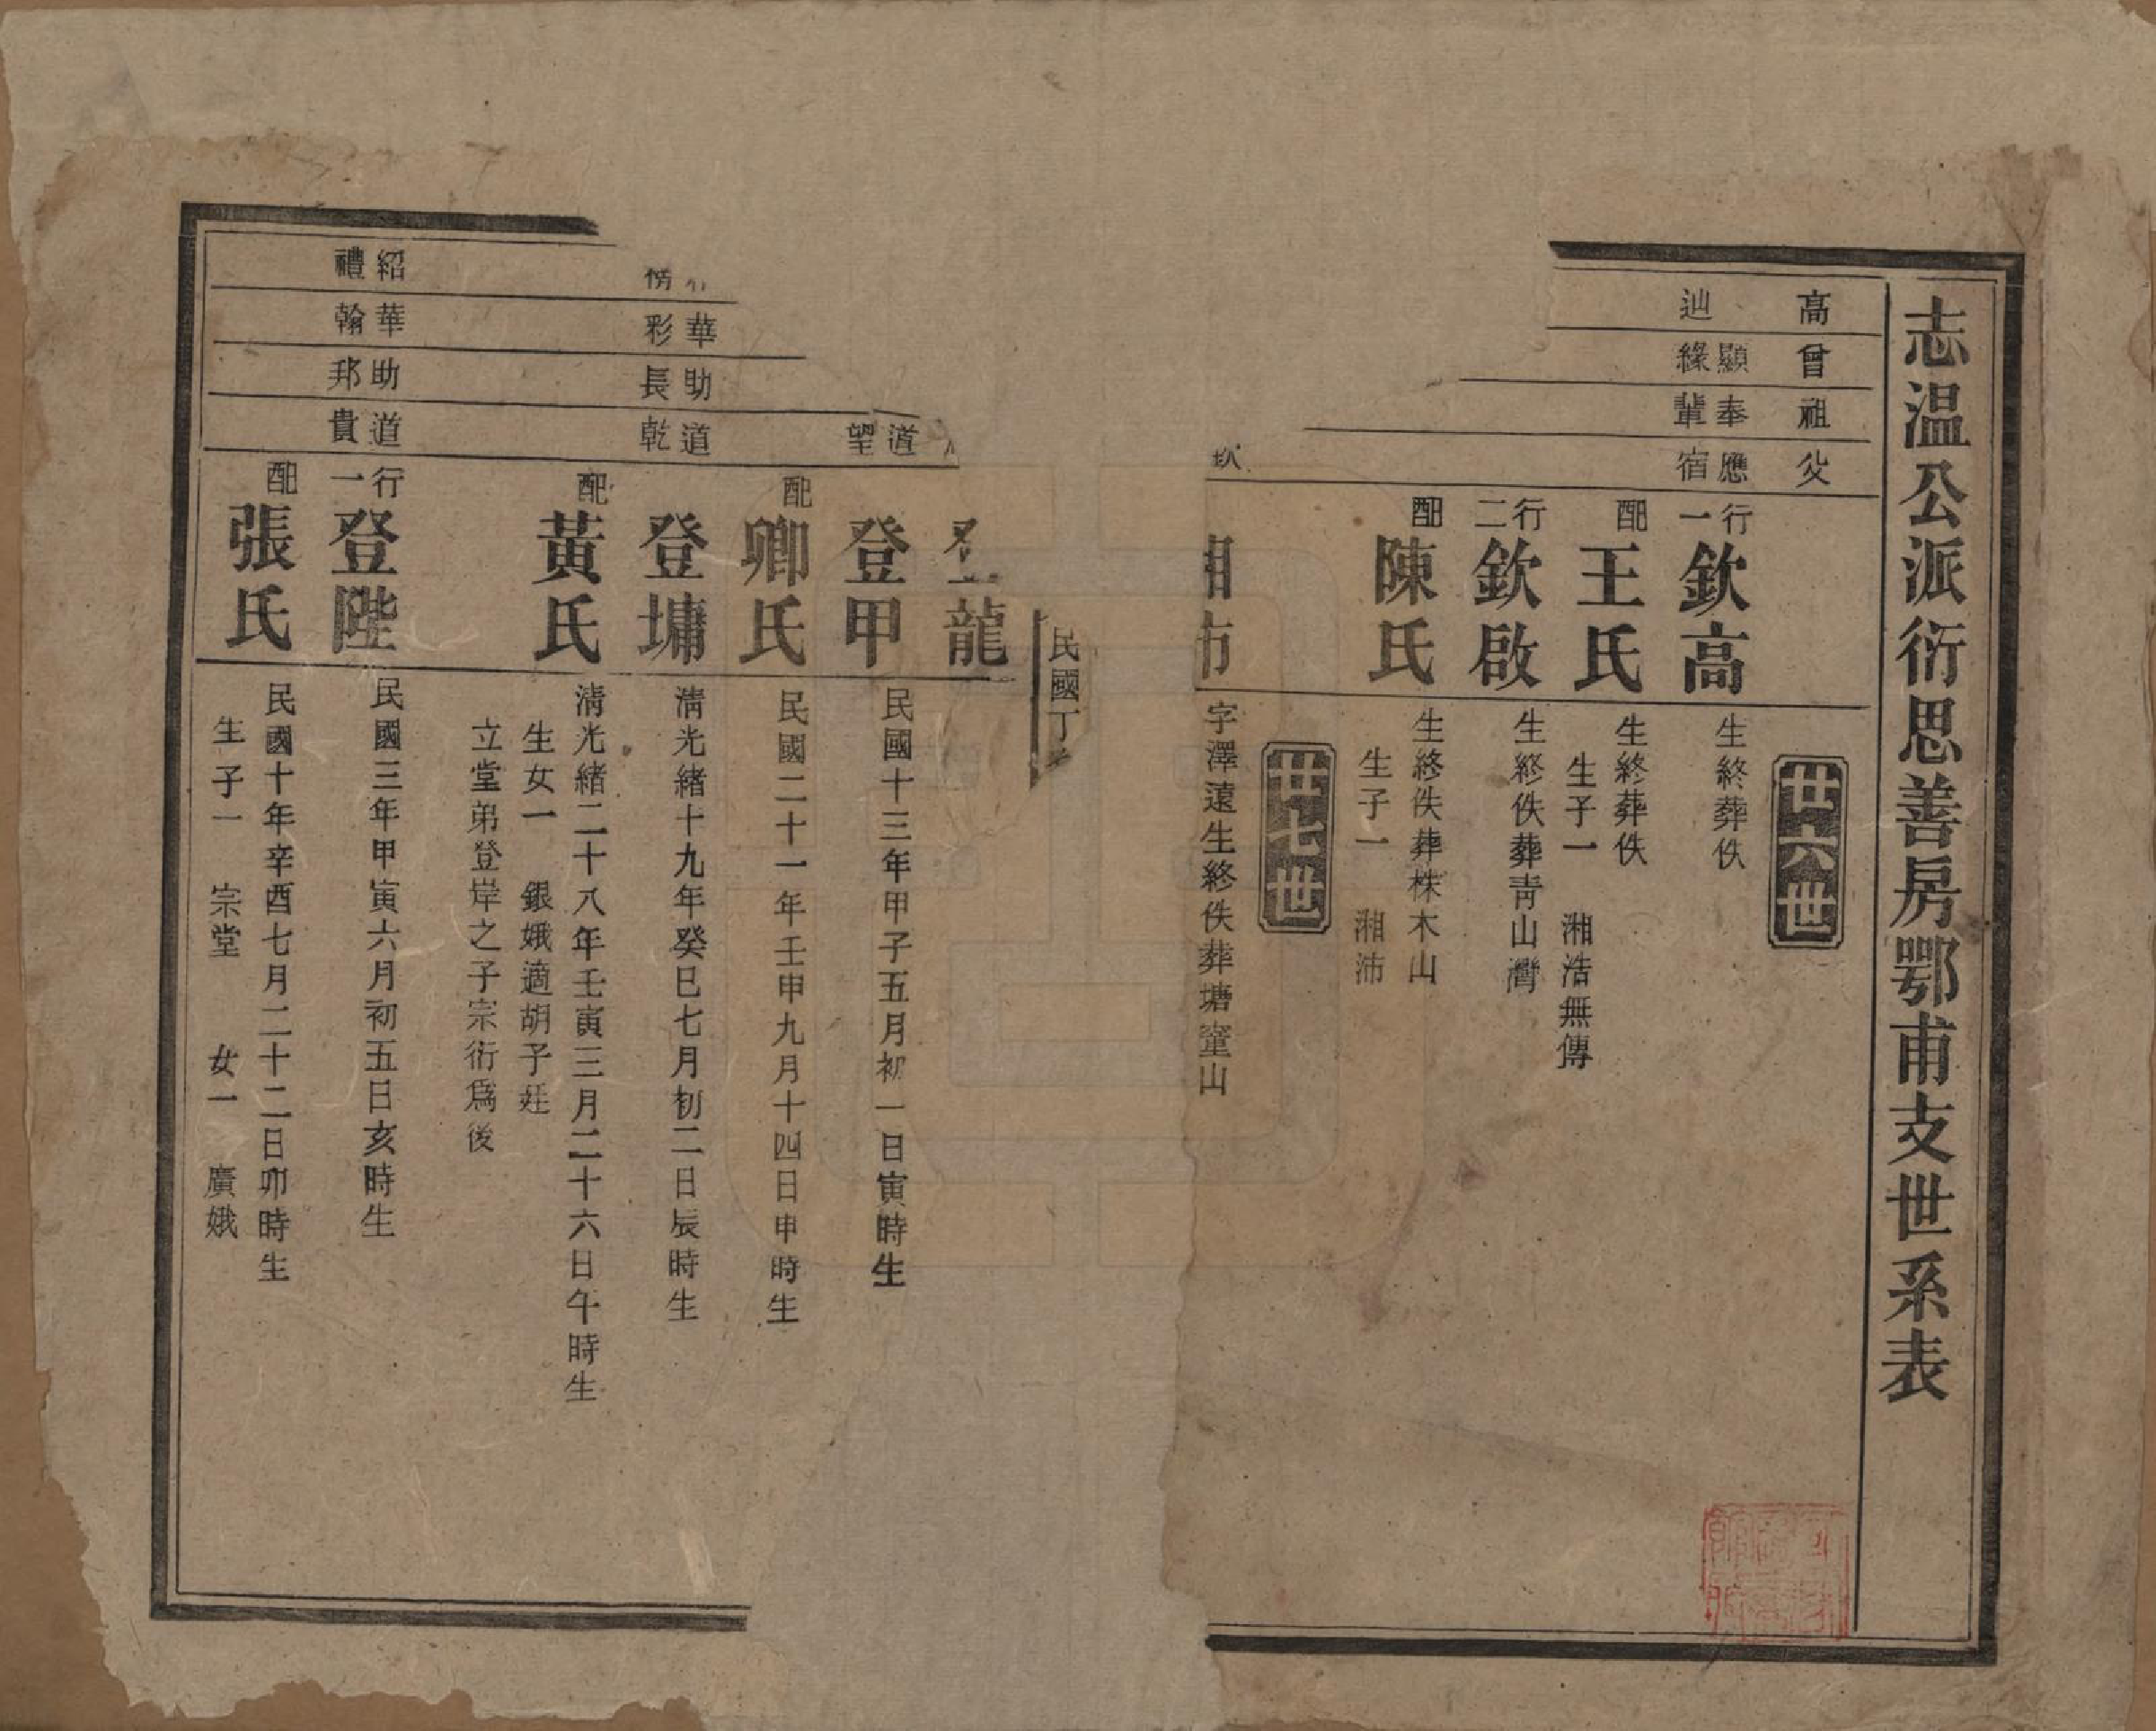 志温公派衍思善房鄂甫支世系表
高
曾
祖
父
廿六世
辿
顯緣
奉輩
應宿
行一
欽高
生終葬佚
配
王氏
生終葬佚
生子一 湘浩無傳
行二
欽啟
生終佚葬青山灣
配
陳氏
生終佚葬株木山
生子一 湘沛
廿七世
字澤遠生終佚葬塘窰山
民國丁
龍
道望
登甲
民國十三年甲子五月初一日寅時生
配
卿氏
民國二十一年壬申九月十四日申時生
華彩
助長
道乾
登墉
清光緒十九年癸巳七月初二日辰時生
配
黃氏
清光緒二十八年壬寅三月二十六日午時生
生女一 銀娥適胡子姓
立堂弟登岸之子宗衔為後
紹禮
華翰
助邦
道貴
行一
登陛
民國三年甲寅六月初五日亥時生
配
張氏
民國十年辛酉七月二十二日卯時生
生子一 宗堂 女一 廣娥